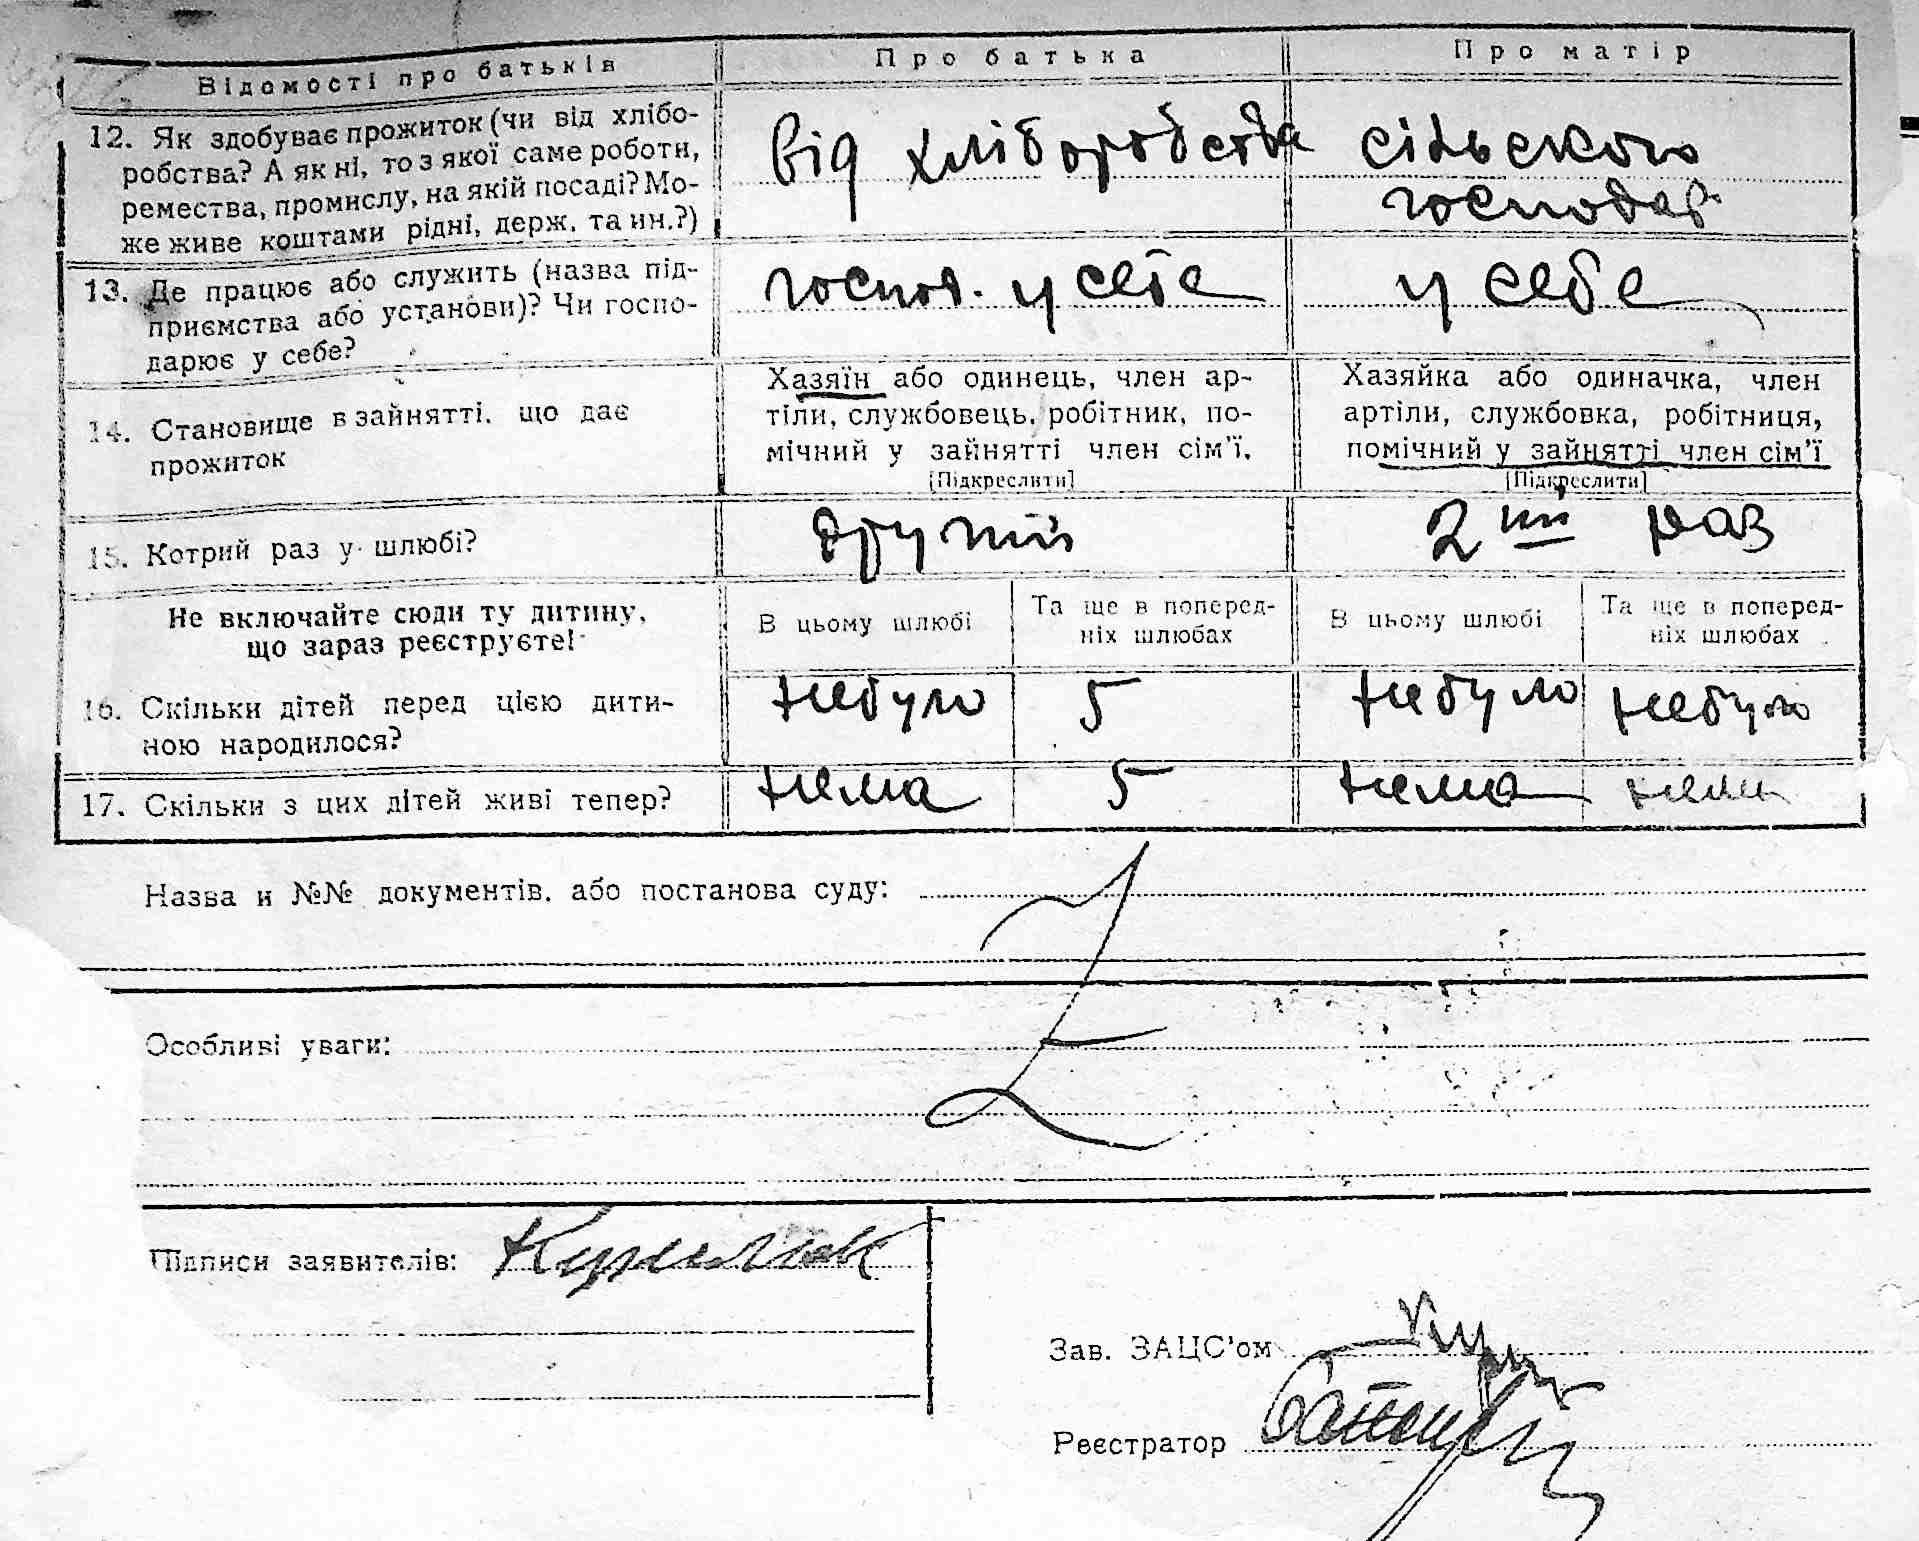 Відомості про батьків
Про батька
Про матір
12. Як здобуває прожиток (чи від хлібо-
робства? А як ні, то з якої саме роботи,
ремества, промислу, на якій посаді? Мо-
же живе коштами рідні, держ. та ин.?)
від хліборобства
сільського
господар.
13. Де працює або служить (назва під-
приємства або установи)? Чи госпо-
дарює у себе?
господ. у себе
у себе
14. Становище в зайнятті, що дає
прожиток
Хазяїн або одинець, член ар-
тіли, службовець, робітник, по-
мічний у зайнятті член сім'ї.
[Підкреслити]
Хазяйка або одиначка, член
артіли, службовка, робітниця,
помічний у зайнятті член сім'ї
[Підкреслити]
15. Котрий раз у шлюбі?
другий
2ий раз
Не включайте сюди ту дитину,
що зараз реєструєте!
В цьому шлюбі
Та ще в поперед-
ніх шлюбах
В цьому шлюбі
Та ще в поперед-
ніх шлюбах
16. Скільки дітей перед цією дити-
ною народилося?
небуло
5
небуло
небуло
17. Скільки з цих дітей живі тепер?
нема
5
нема
нема
Назва и №№ документів, або постанова суду:
Особливі уваги:
Підписи заявителів:
Зав. ЗАЦС'ом
Реєстратор